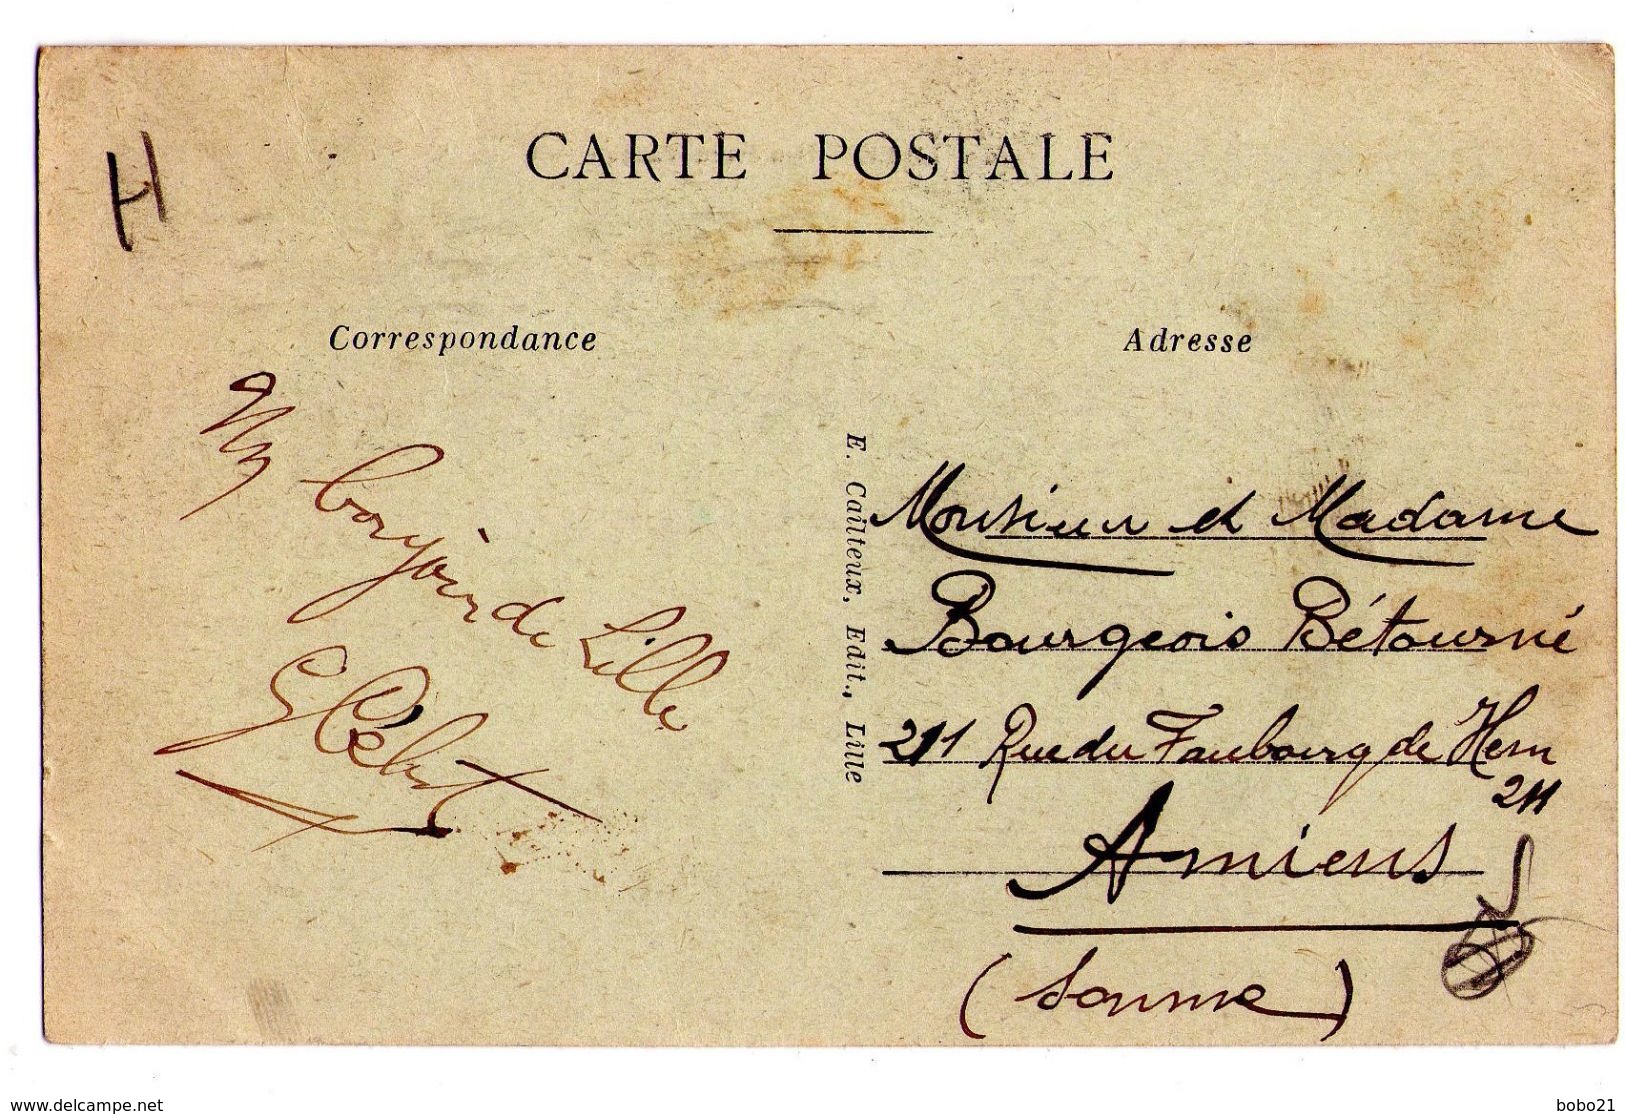 CARTE POSTALE
H
Correspondance
Un bonjour de Lille
G
E. Cailteux, Edit., Lille
Adresse
Monsieur et Madame
Bourgeois Bétourné
211 Rue du Faubourg de Hem
211
Amiens
(Somme)
www.delcampe.net
bobo21